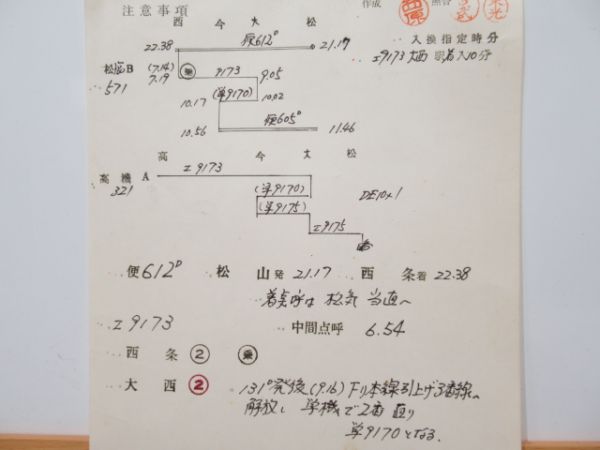 注意事項
作成
西 今 大 松
入換指定時分
22.38 便612D 21.17
エ9173 大西 駅着入10分
松気B (7.14) 9173 9.05
571 7.19 乗
10.17 (単9170) 10.02
便605D
10.56 11.46
高 今 大 松
高機A エ9173
321
(単9170) DE10×1
(単9175)
エ9175
便612D 松山発 21.17 西条着 22.38
着点呼は 松気 当直へ
エ9173 中間点呼 6.54
西条 ② 乗
大西 ② 131D発後(9.16)下り本線引上げ3番線へ
解放し 単機で2番 直り
単9170となる.